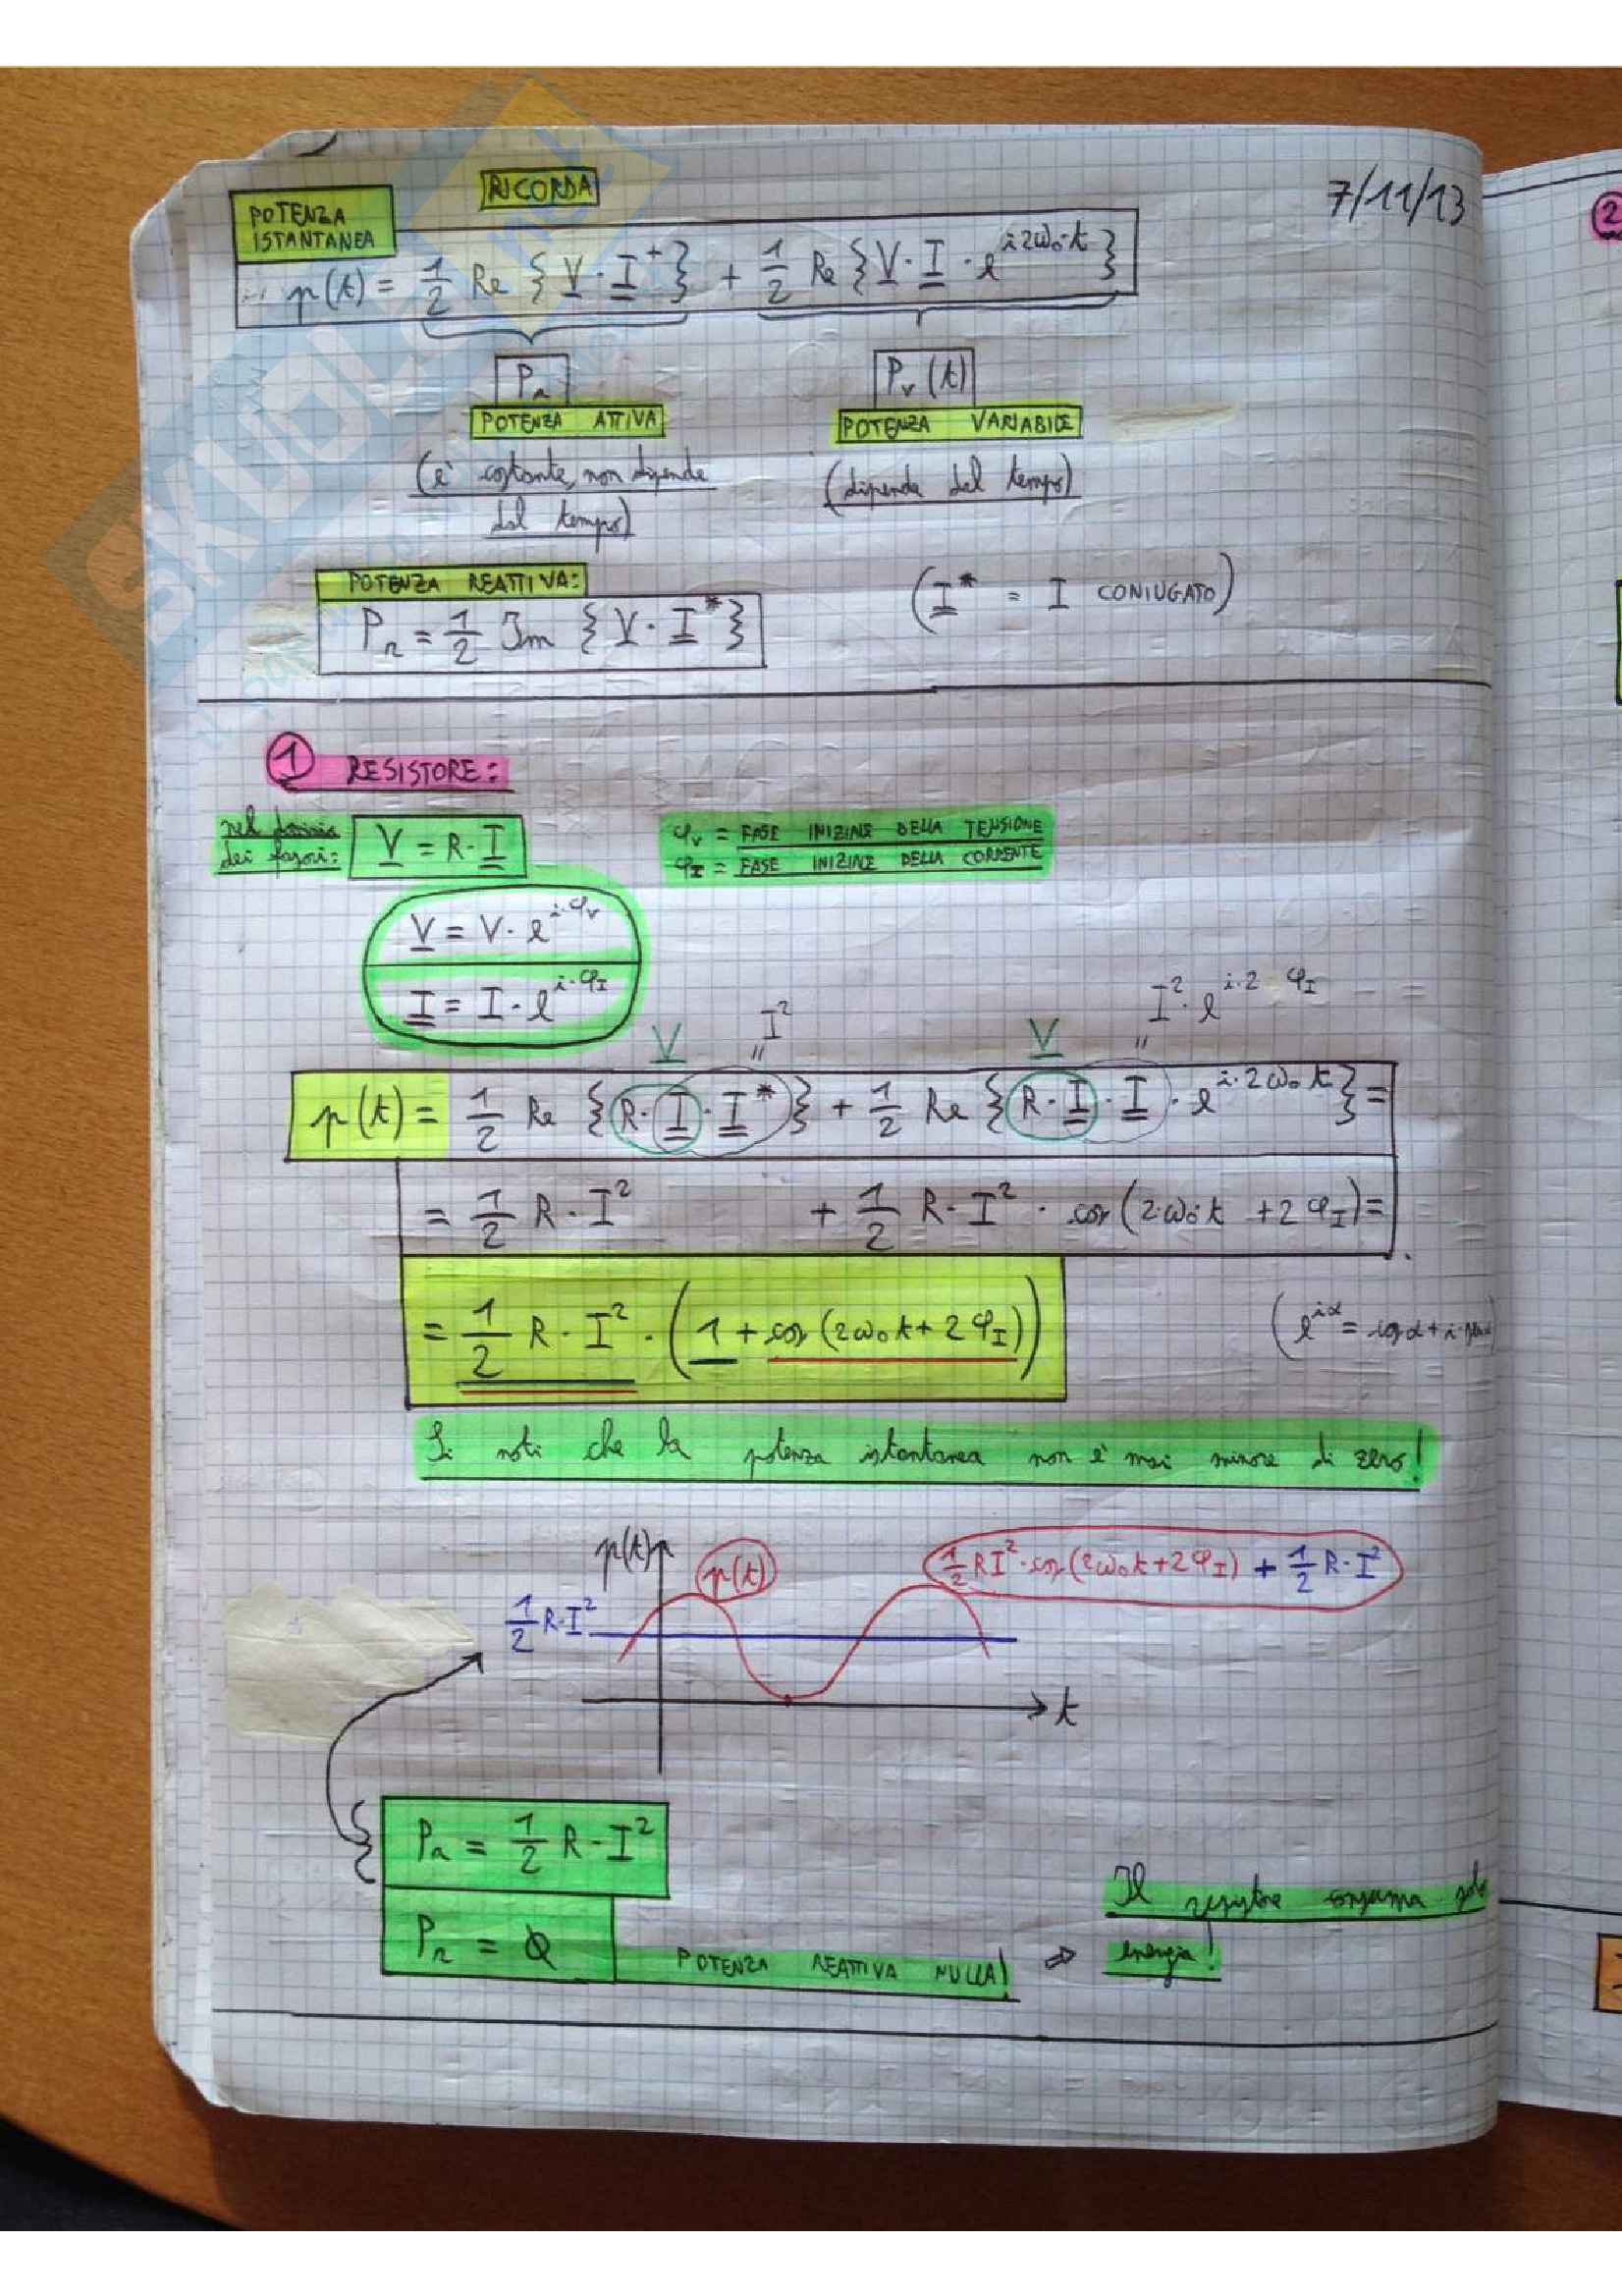 RICORDA
7/11/13
POTENZA
ISTANTANEA
p(t) = 1/2 Re {V · I⁺} + 1/2 Re {V · I · e^{i2ω₀·t}}
Pₐ
Pᵥ(t)
POTENZA ATTIVA
POTENZA VARIABILE
(è costante, non dipende
dal tempo)
(dipende dal tempo)
POTENZA REATTIVA:
Pᵣ = 1/2 Im {V · I*}
(I* = I CONIUGATO)
① RESISTORE:
nel dominio
dei fasori:
V = R · I
φᵥ = FASE INIZIALE DELLA TENSIONE
φ_I = FASE INIZIALE DELLA CORRENTE
V = V · e^{i·φᵥ}
I = I · e^{i·φ_I}
V
I²
"
V
I² · e^{i·2 φ_I}
"
p(t) = 1/2 Re {R · I · I*} + 1/2 Re {R · I · I · e^{i·2ω₀t}} =
= 1/2 R · I² + 1/2 R · I² · cos(2·ω₀·t + 2φ_I) =
= 1/2 R · I² · (1 + cos(2ω₀t + 2φ_I))
(e^{iα} = cosα + i·
Si noti che la potenza istantanea non è mai minore di zero!
p(t)
p(t)
1/2 RI² · cos(2ω₀t + 2φ_I) + 1/2 R · I²
1/2 R · I²
t
Pₐ = 1/2 R · I²
Pᵣ = 0
POTENZA REATTIVA NULLA! ⇒
Il resistore consuma solo
energia!
2
SKUOLA